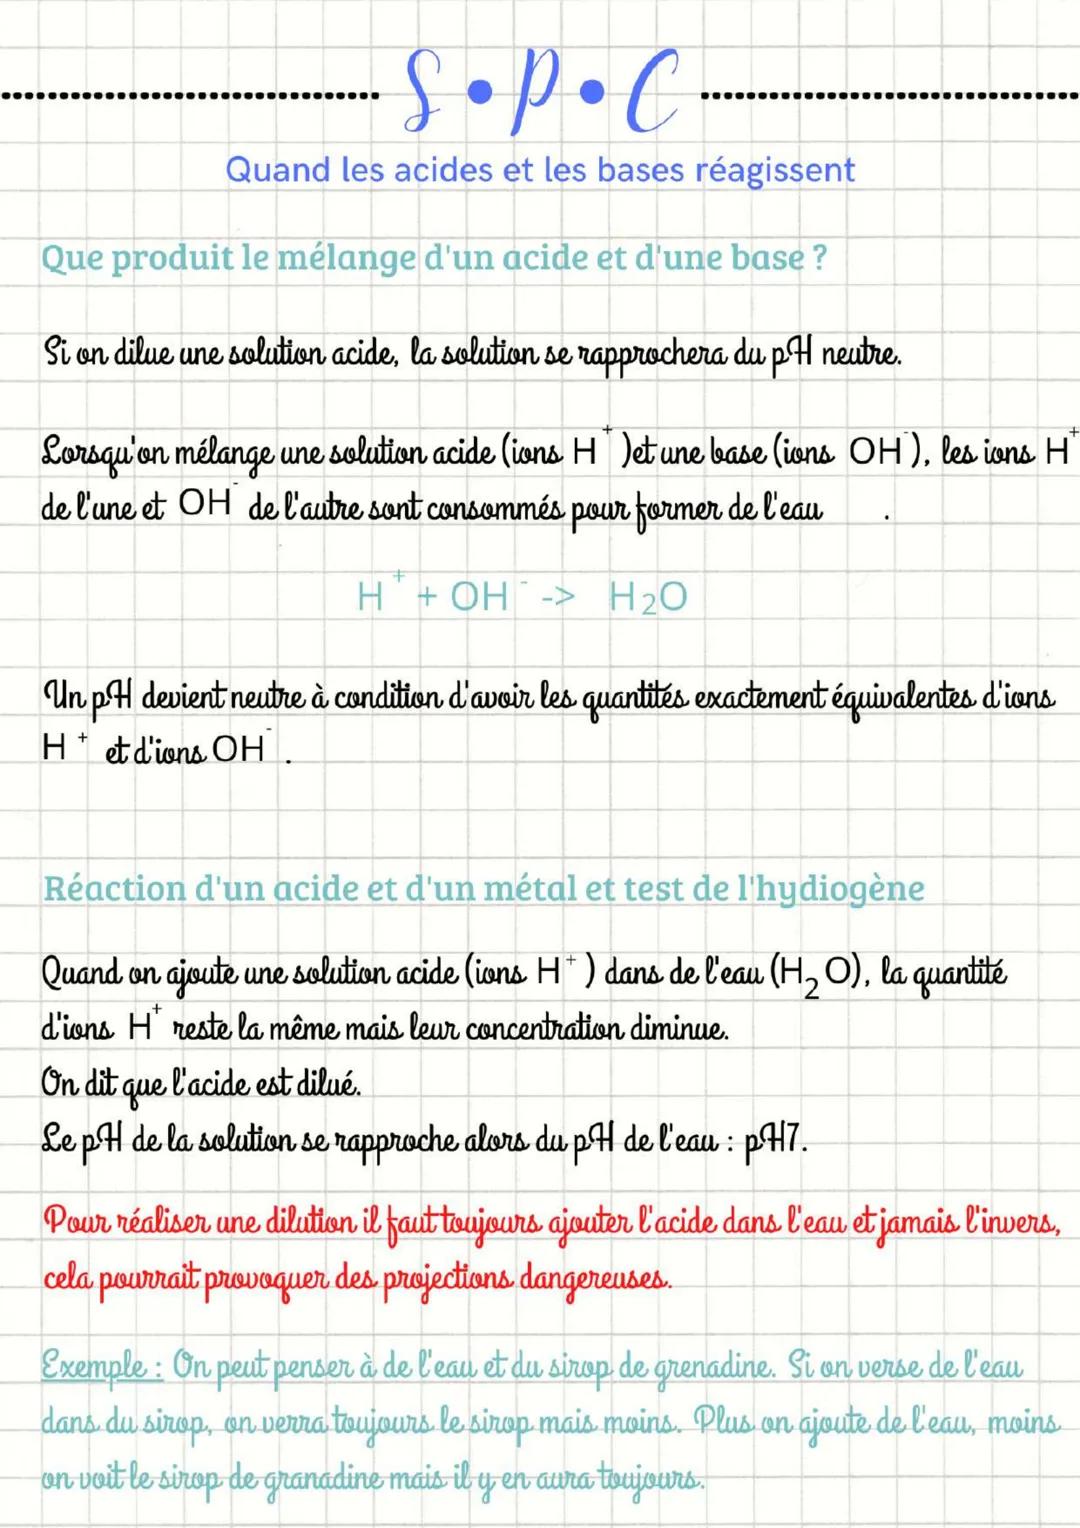 S•P•C
Quand les acides et les bases réagissent
Que produit le mélange d'un acide et d'une base ?
Si on dilue une solution acide, la solution se rapprochera du pH neutre.
Lorsqu'on mélange une solution acide (ions H⁺ )et une base (ions OH⁻), les ions H⁺
de l'une et OH⁻ de l'autre sont consommés pour former de l'eau .
H⁺ + OH⁻ -> H₂O
Un pH devient neutre à condition d'avoir les quantités exactement équivalentes d'ions
H⁺ et d'ions OH⁻ .
Réaction d'un acide et d'un métal et test de l'hydiogène
Quand on ajoute une solution acide (ions H⁺ ) dans de l'eau (H₂O), la quantité
d'ions H⁺ reste la même mais leur concentration diminue.
On dit que l'acide est dilué.
Le pH de la solution se rapproche alors du pH de l'eau : pH7.
Pour réaliser une dilution il faut toujours ajouter l'acide dans l'eau et jamais l'invers,
cela pourrait provoquer des projections dangereuses.
Exemple : On peut penser à de l'eau et du sirop de grenadine. Si on verse de l'eau
dans du sirop, on verra toujours le sirop mais moins. Plus on ajoute de l'eau, moins
on voit le sirop de granadine mais il y en aura toujours.